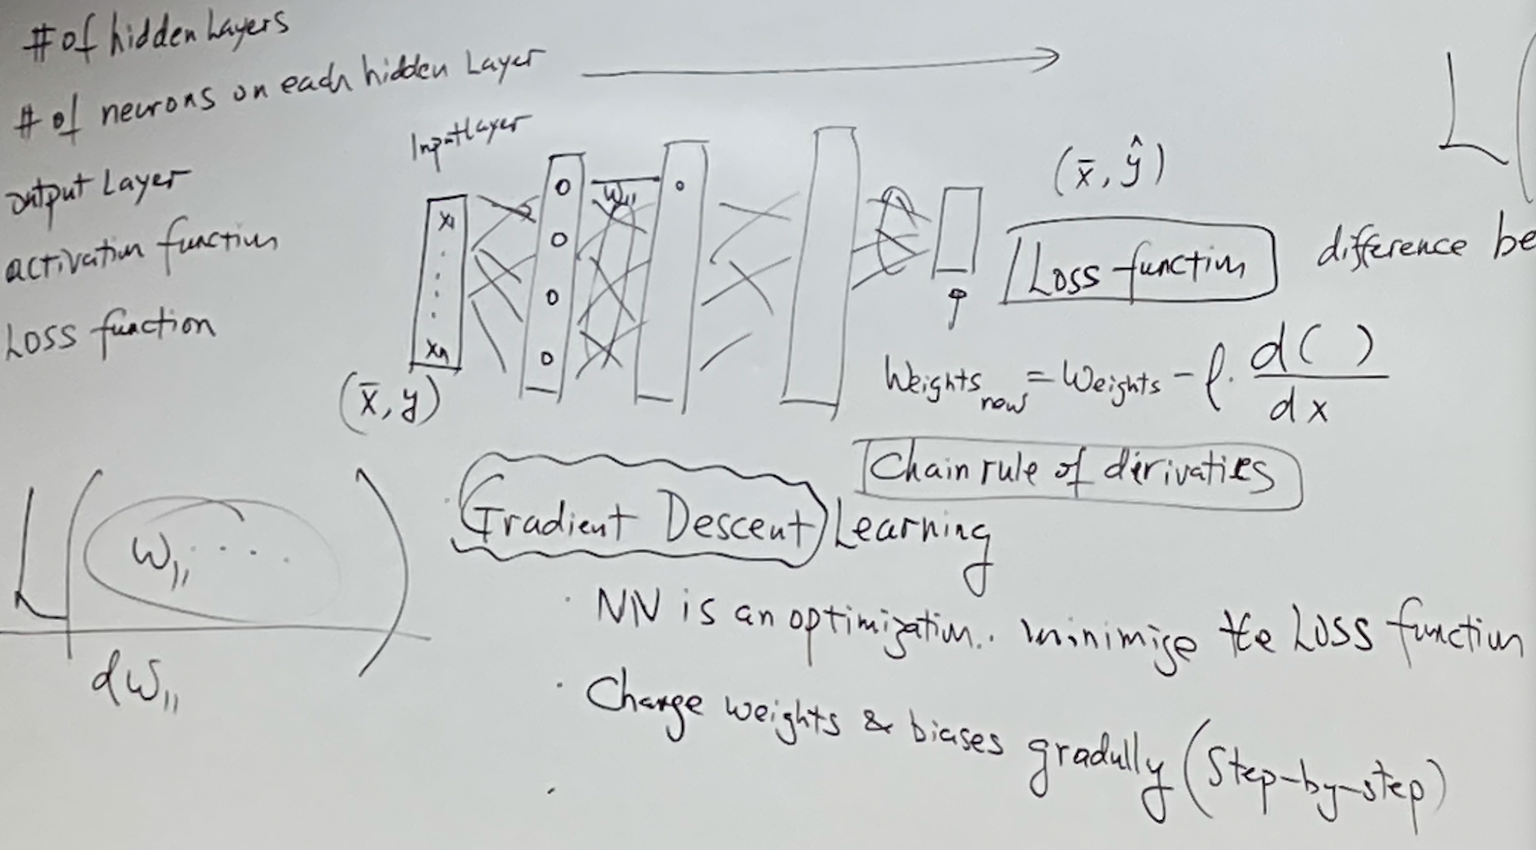 # of hidden Layers
# of neurons on each hidden Layer
output Layer
activation function
Loss function
Input Layer
x₁
xₙ
(x̄, y)
W₁₁
(x̄, ŷ)
Loss function
L(
difference be
Weights new = Weights - ρ · d( ) / dx
Chain rule of derivaties
Gradient Descent Learning
· NN is an optimization. minimize the Loss function
· Change weights & biases gradully (Step-by-step)
L( W₁₁ . . . . )
dW₁₁